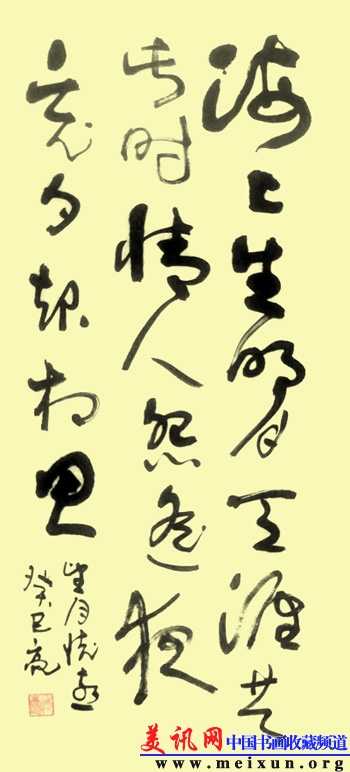 海上生明月天涯共
此时情人怨遥夜
竟夕起相思
望月怀远
癸巳亮
美讯网 中国书画收藏频道
www.meixun.org